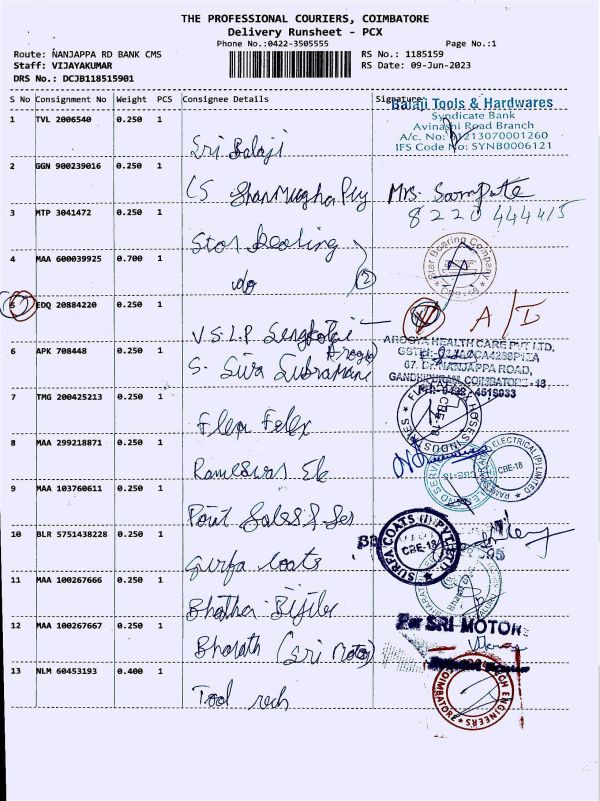 THE PROFESSIONAL COURIERS, COIMBATORE
Delivery Runsheet - PCX
Phone No.:0422-3505555
Page No.:1
Route: NANJAPPA RD BANK CMS
RS No.: 1185159
Staff: VIJAYAKUMAR
RS Date: 09-Jun-2023
DRS No.: DCJB118515901
S No Consignment No Weight PCS Consignee Details Signature
Balaji Tools & Hardwares
Syndicate Bank
Avinashi Road Branch
IFS Code No: SYNB0006121
1 TVL 2006540 0.250 1
Sri Balaji
2 GGN 900239016 0.250 1
Shanmugha
Mrs.
3 MTP 3041472 0.250 1
Star
4 MAA 600039925 0.700 1
do
2
Star Bearing Company
5 EDQ 20884220 0.250 1
V.S.L.P
A/D
AROGYA HEALTH CARE PVT LTD.
67, Dr. NANJAPPA ROAD,
GANDHIPURAM, COIMBATORE - 18
6 APK 708448 0.250 1
S. Siva Subramani
7 TMG 200425213 0.250 1
Flexi
HOSES INDUSTRIES
CBE-18
8 MAA 299218871 0.250 1
Rameswar Ele
ELECTRICAL (P) LIMITED
CBE-18
9 MAA 103760611 0.250 1
Point Sales & Ser
10 BLR 5751438228 0.250 1
Surfa Coats
SURFA COATS (I) PVT. LTD.
CBE-18
11 MAA 100267666 0.250 1
12 MAA 100267667 0.250 1
Bharath (Sri Motor)
For SRI MOTOR
13 NLM 60453193 0.400 1
Tool Tech
TECH ENGINEERS
COIMBATORE